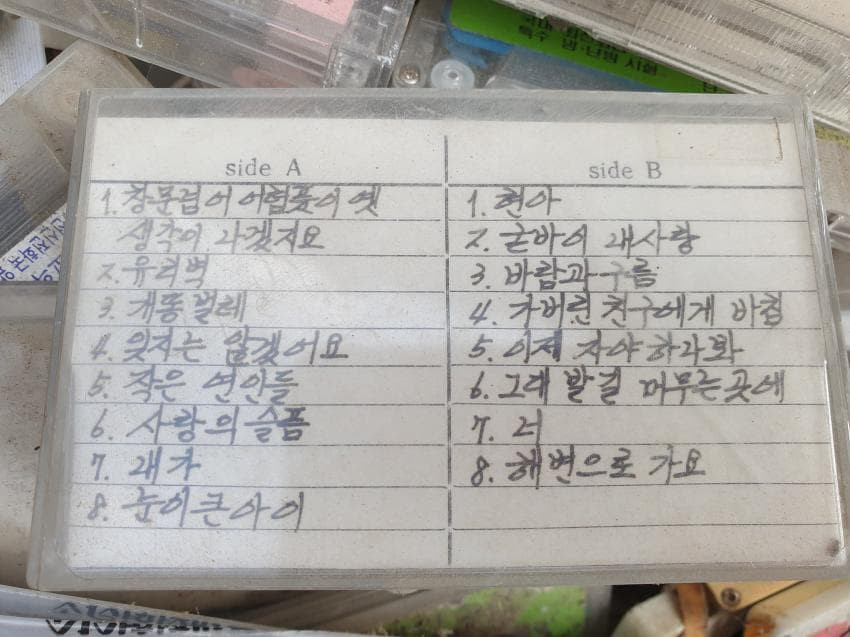 특수 냉·난방 시험
side A
1. 창문넘어 어렴풋이 옛
생각이 나겠지요
2. 유리벽
3. 개똥벌레
4. 잊지는 않겠어요
5. 작은 연인들
6. 사랑의 슬픔
7. 내가
8. 눈이큰아이
side B
1. 현아
2. 굳바이 내사랑
3. 바람과 구름
4. 가버린 친구에게 바침
5. 이제 자야하나봐
6. 그대 발길 머무는곳에
7. 너
8. 해변으로 가요